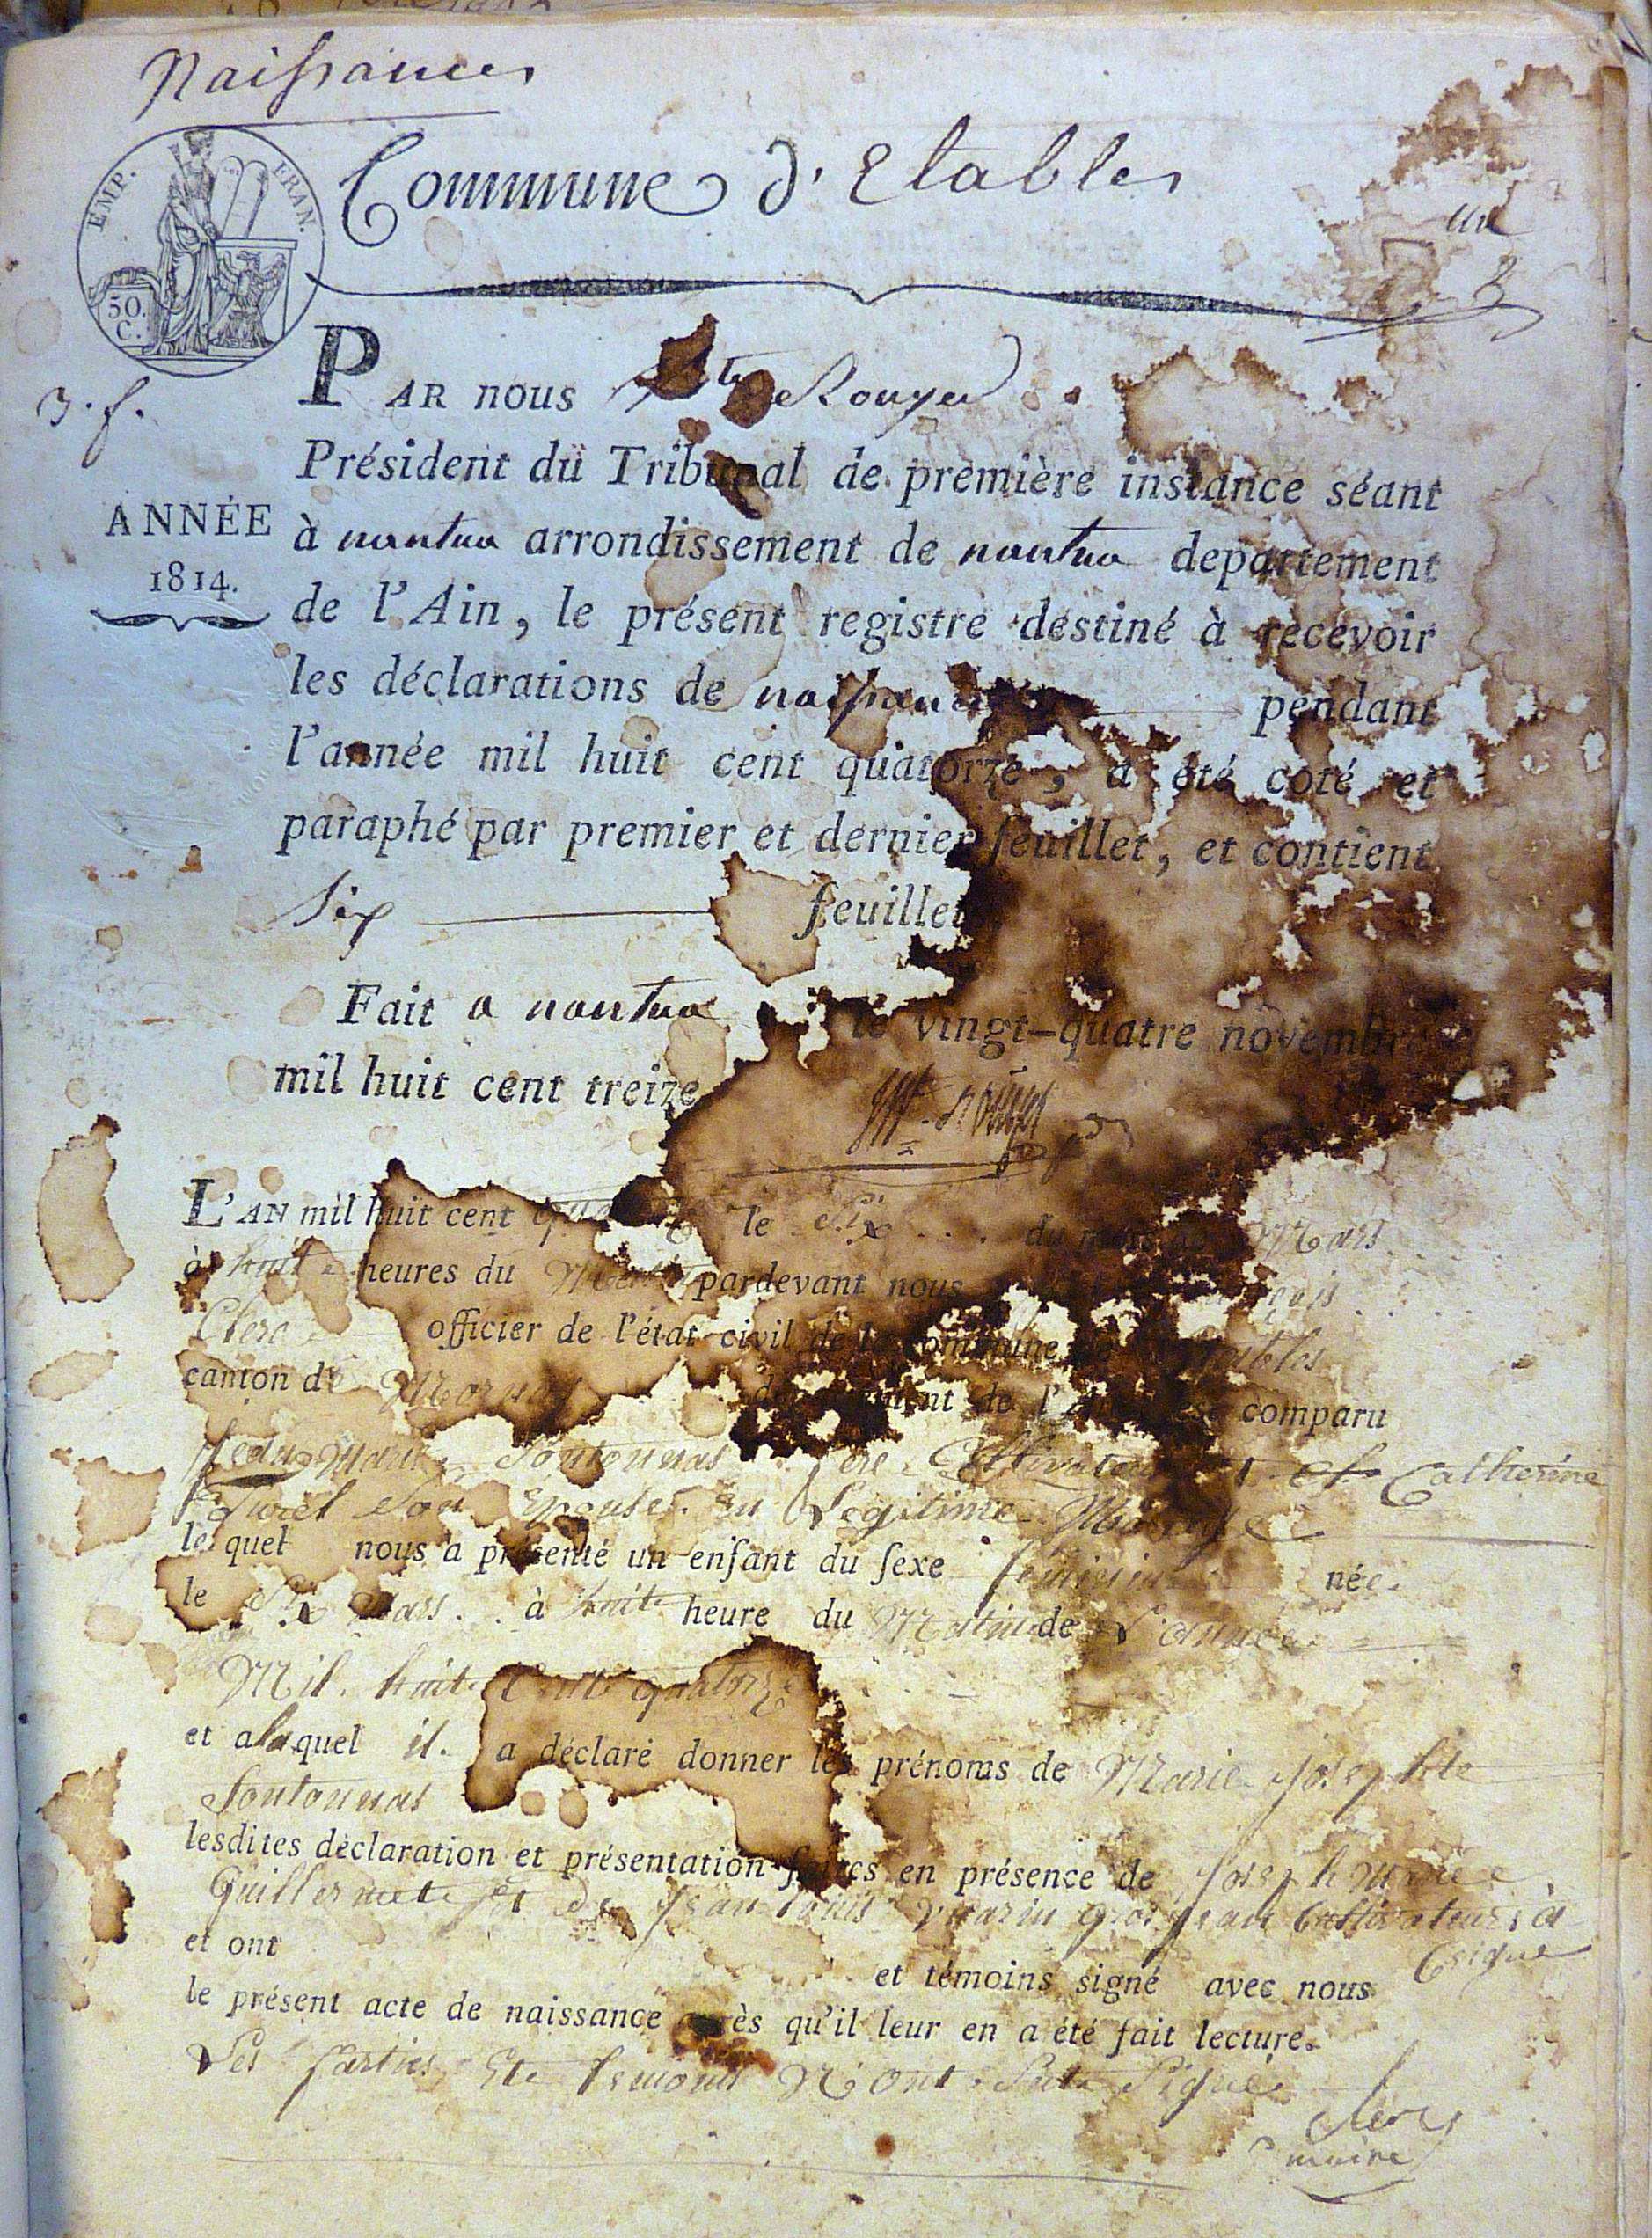 Naissances
EMP. FRAN.
50. C.
Commune d'Etables
un
3. f.
PAR nous Rouyer
Président du Tribunal de première instance séant
ANNÉE
1814.
à nantua arrondissement de nantua departement
de l'Ain, le présent registre destiné à recevoir
les déclarations de naissances pendant
l'année mil huit cent quatorze, a été coté et
paraphé par premier et dernier feuillet, et contient
Six feuillets
Fait a nantua le vingt-quatre novembre
mil huit cent treize
L'AN mil huit cent quatorze le Six du mois de Mars
à huit heures du Matin pardevant nous
Clerc officier de l'état civil de la commune d'Etables
canton de département de l'Ain est comparu
Jean Marie Soutonnas Cultivateur et Catherine
son Epouse en Légitime Mariage
lequel nous a présenté un enfant du sexe féminin née
le Six Mars à huit heure du Matin de L'année
Mil huit Cent quatorze
et alaquel il a déclaré donner les prénoms de Marie josephte
Soutonnas
lesdites déclaration et présentation faites en présence de joseph Marie
Guillermet et de jean Louis grosjean Cultivateurs à
et ont et témoins signé avec nous
le présent acte de naissance après qu'il leur en a été fait lecture.
Les Parties Et temoins N'ont Signé
Clerc
maire